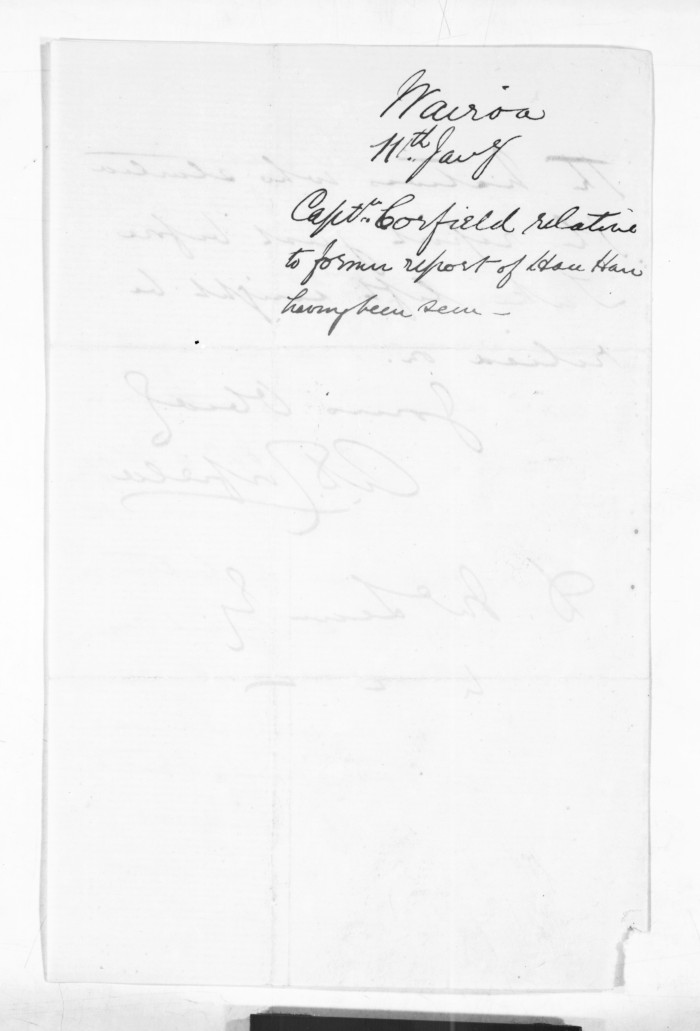 Wairoa
11th. Jany
Captn. Corfield relative
to former report of Hau Hau
having been seen —